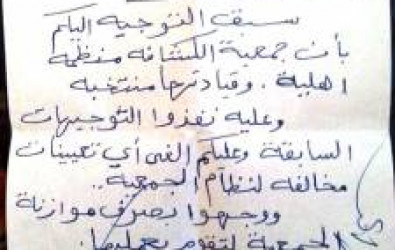 سبق التوجيه اليكم
بأن جمعية الكشافة منظمة
اهلية. وقيادتها منتخبة
وعليه نفذوا التوجيهات
السابقة وعليكم الغى أي تعيينات
مخالفة لنظام الجمعية..
ووجهوا بصرف موازنة
الجمعية لتقوم بعملها.